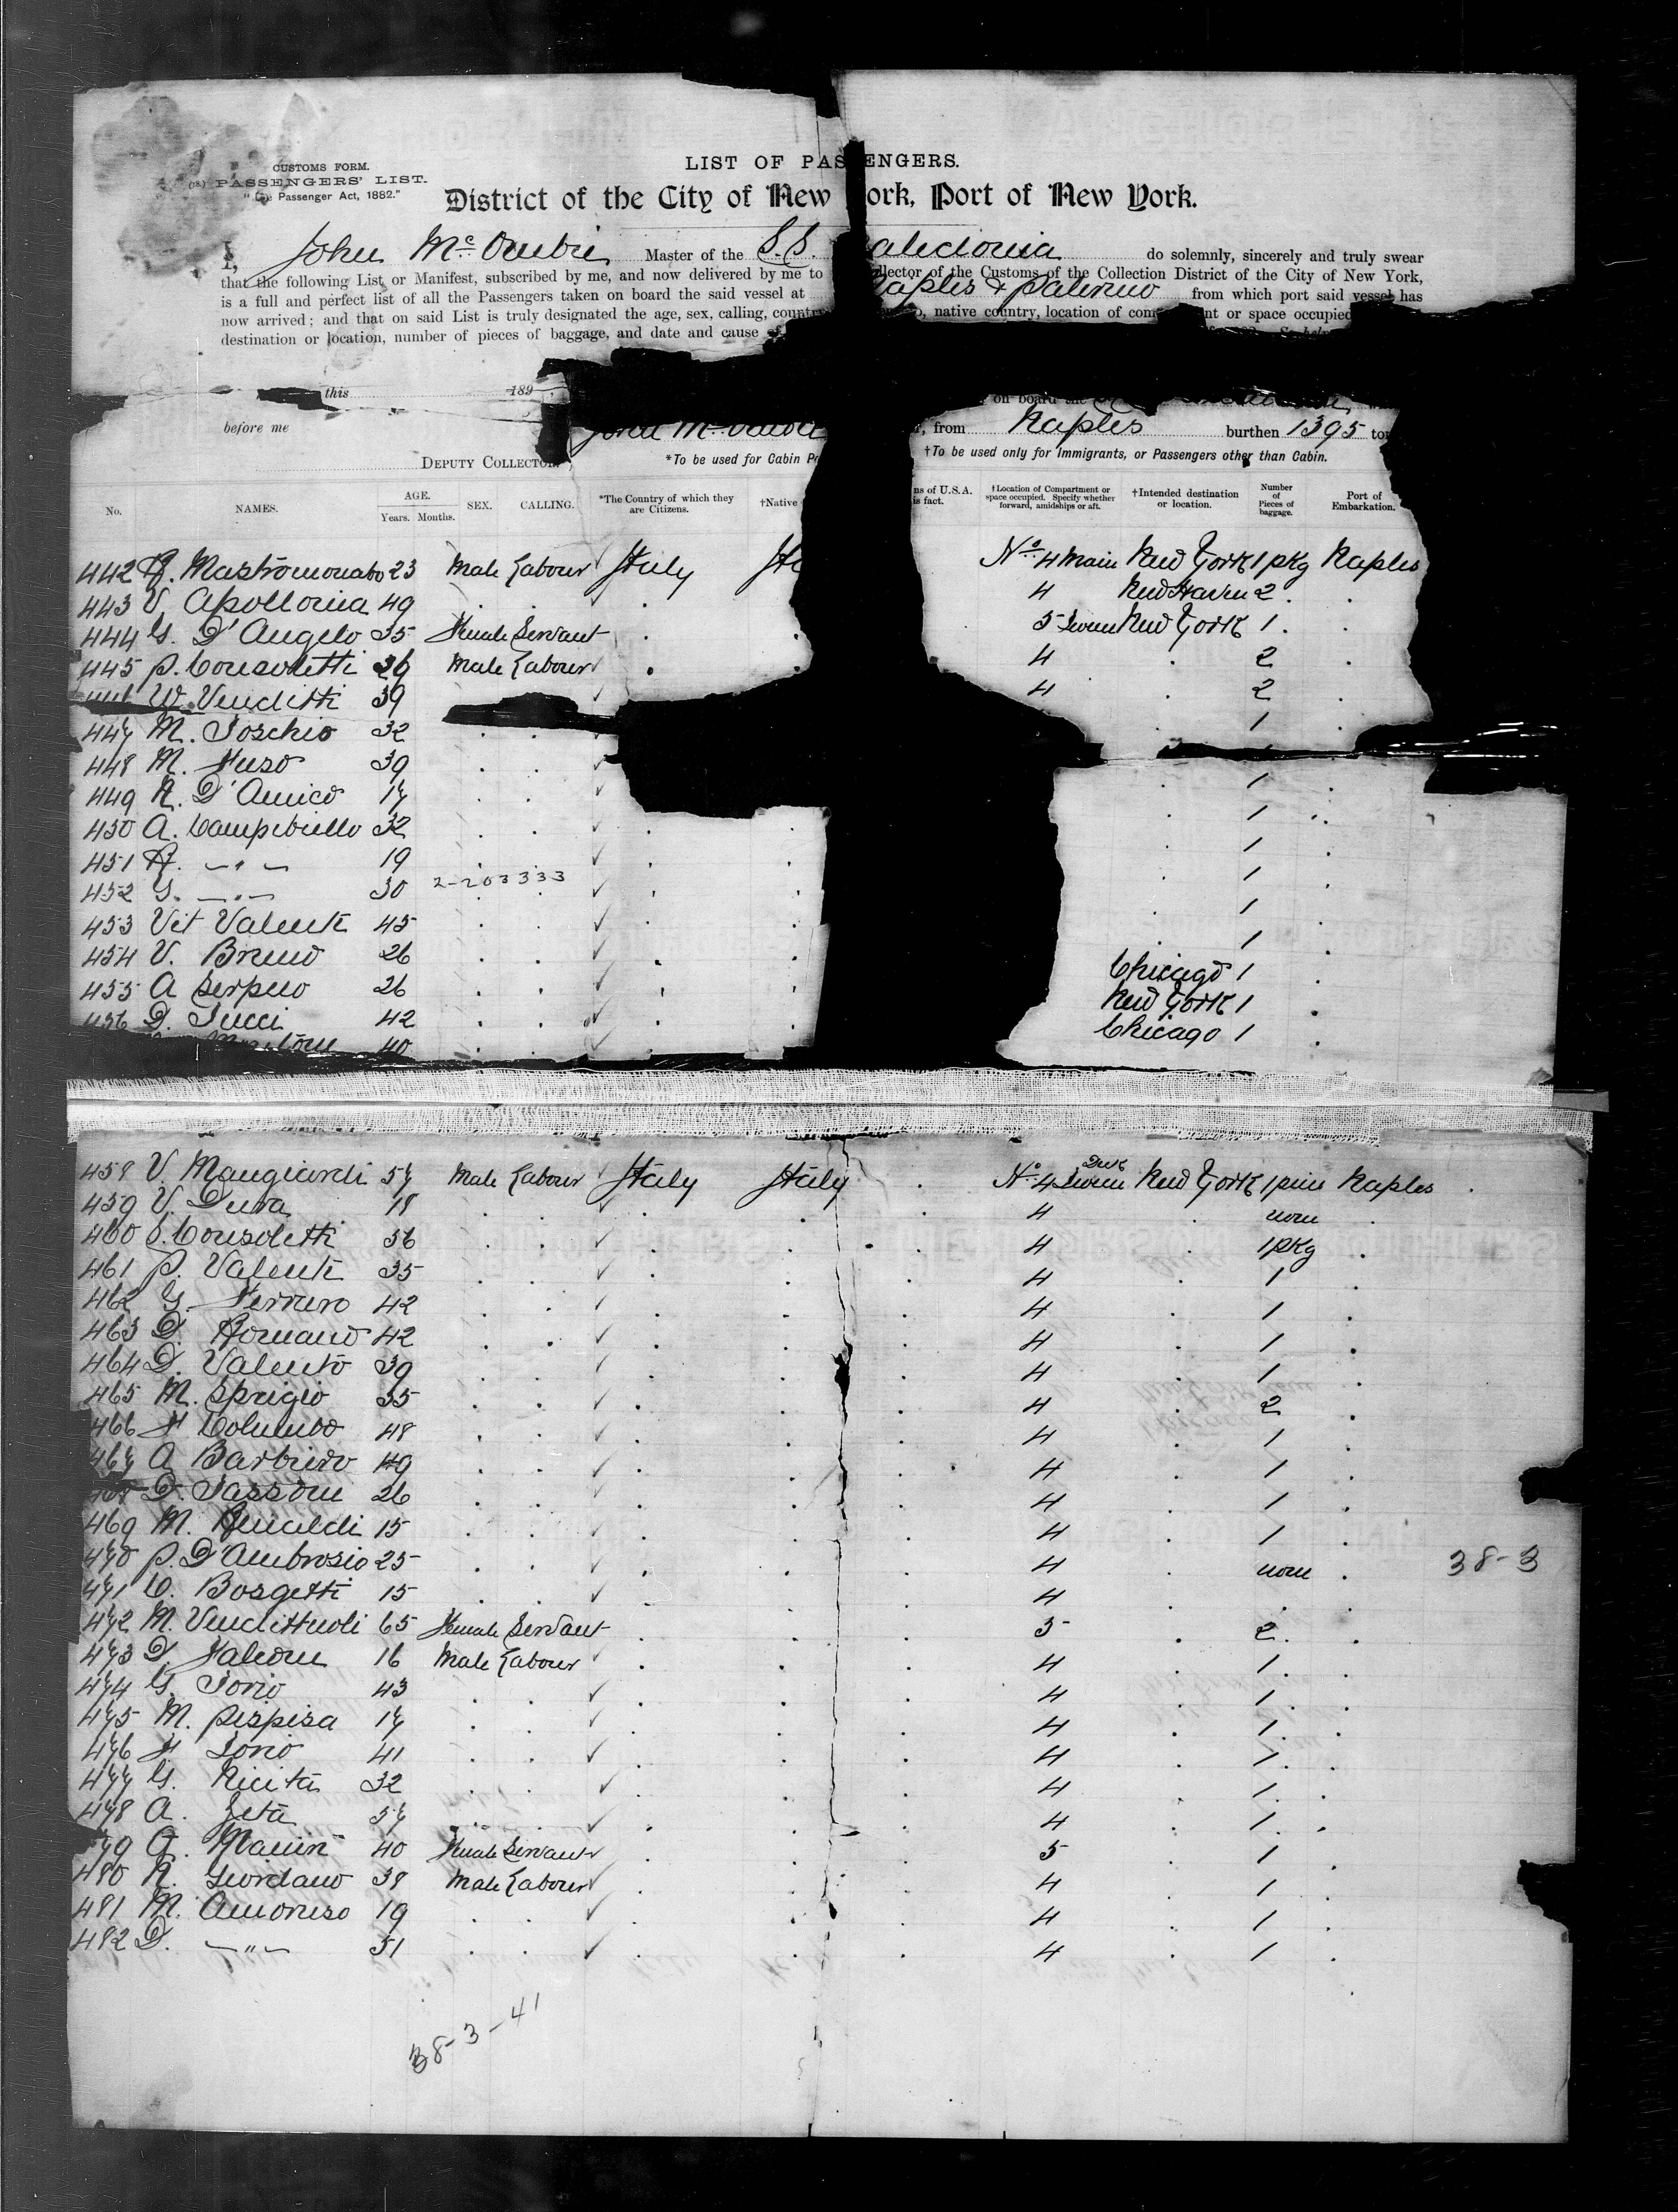 LIST OF PASSENGERS.
CUSTOMS FORM.
PASSENGERS' LIST.
Passenger Act, 1882."
District of the City of New York, Port of New York.
I, John Mc Master of the S.S. aledonia do solemnly, sincerely and truly swear
that the following List or Manifest, subscribed by me, and now delivered by me to llector of the Customs of the Collection District of the City of New York,
is a full and perfect list of all the Passengers taken on board the said vessel at Naples & Palermo from which port said vessel has
now arrived; and that on said List is truly designated the age, sex, calling, country native country, location of com nt or space occupied
destination or location, number of pieces of baggage, and date and cause of
this 189
on board the
before me John Mc
from Naples burthen 1395 to
DEPUTY COLLECTOR. *To be used for Cabin P †To be used only for Immigrants, or Passengers other than Cabin.
No. NAMES. AGE. Years. Months. SEX. CALLING. *The Country of which they are Citizens. †Native ns of U.S.A. is fact. †Location of Compartment or space occupied. Specify whether forward, amidships or aft. †Intended destination or location. Number of Pieces of baggage. Port of Embarkation.
442 R. Mastromonabo 23 Male Labour Italy It No 4 Main New York 1 pkg Naples
443 V. Apollonia 49 . . . 4 New Haven 2 . .
444 G. D'Angelo 35 Female Servant . . 5 New York 1 . .
445 P. Consoletti 26 Male Labour . . 4 . 2 .
W. Venditti 39 4 . 2 .
447 M. Toschio 32 . . . 1
448 M. Fuso 39 . .
449 N. D'Amico 17 . . . 1 .
450 A. Campebiello 32 . . . . . 1 .
451 R. — " — 19 . . . . . 1 .
452 G. — " — 30 2-203333 . . . 1 .
453 Vit Valente 45 . . . . . 1 .
454 V. Bruno 26 . . . . . 1 .
455 A Serpeo 26 . . . . Chicago 1 .
456 D. Tucci 42 . . . . New York 1 .
40 . . . . Chicago 1 .
458 V. Mangiardi 57 Male Labour Italy Italy . No 4 New York 1 Naples .
459 V. Duva 18 . . . . . 4 . .
460 S. Consoletti 56 . . . . . 4 . 1 pkg .
461 P. Valente 35 . . . . . 4 . 1 .
462 G. Ferraro 42 . . . . . 4 . 1 .
463 D. Romano 42 . . . . . 4 . 1 .
464 D. Valento 39 . . . . . 4 . 1 .
465 M. Sprigio 35 . . . . . 4 . 2 .
466 F Columbo 48 . . . . . 4 . 1 .
467 A Barbiero 49 . . . . . 4 . 1 .
D. Tassone 26 . . . . . 4 . 1 .
469 M. Rinaldi 15 . . . . . 4 . 1 .
470 P. D'Ambrosio 25 . . . . . 4 . . 38-3
471 C. Bosgetti 15 . . . . . 4 . . .
472 M. Vendittuoli 65 Female Servant . . . 5 . 2 .
473 D. Falcone 16 Male Labour . . . 4 . 1 .
474 G. Iorio 43 . . . . . 4 . 1 .
475 M. Pispisa 17 . . . . . 4 . 1 .
476 F. Iorio 41 . . . . . 4 . 1 .
477 G. Nicita 32 . . . . . 4 . 1 .
478 A. Zeta 57 . . . . . 4 . 1 .
40 Female Servant . . . 5 . 1 .
480 N. Giordano 38 Male Labour . . . 4 . 1 .
481 M. Amoruso 19 . . . . . 4 . 1 .
482 D. — " — 51 . . . . . 4 . 1 .
38-3-41